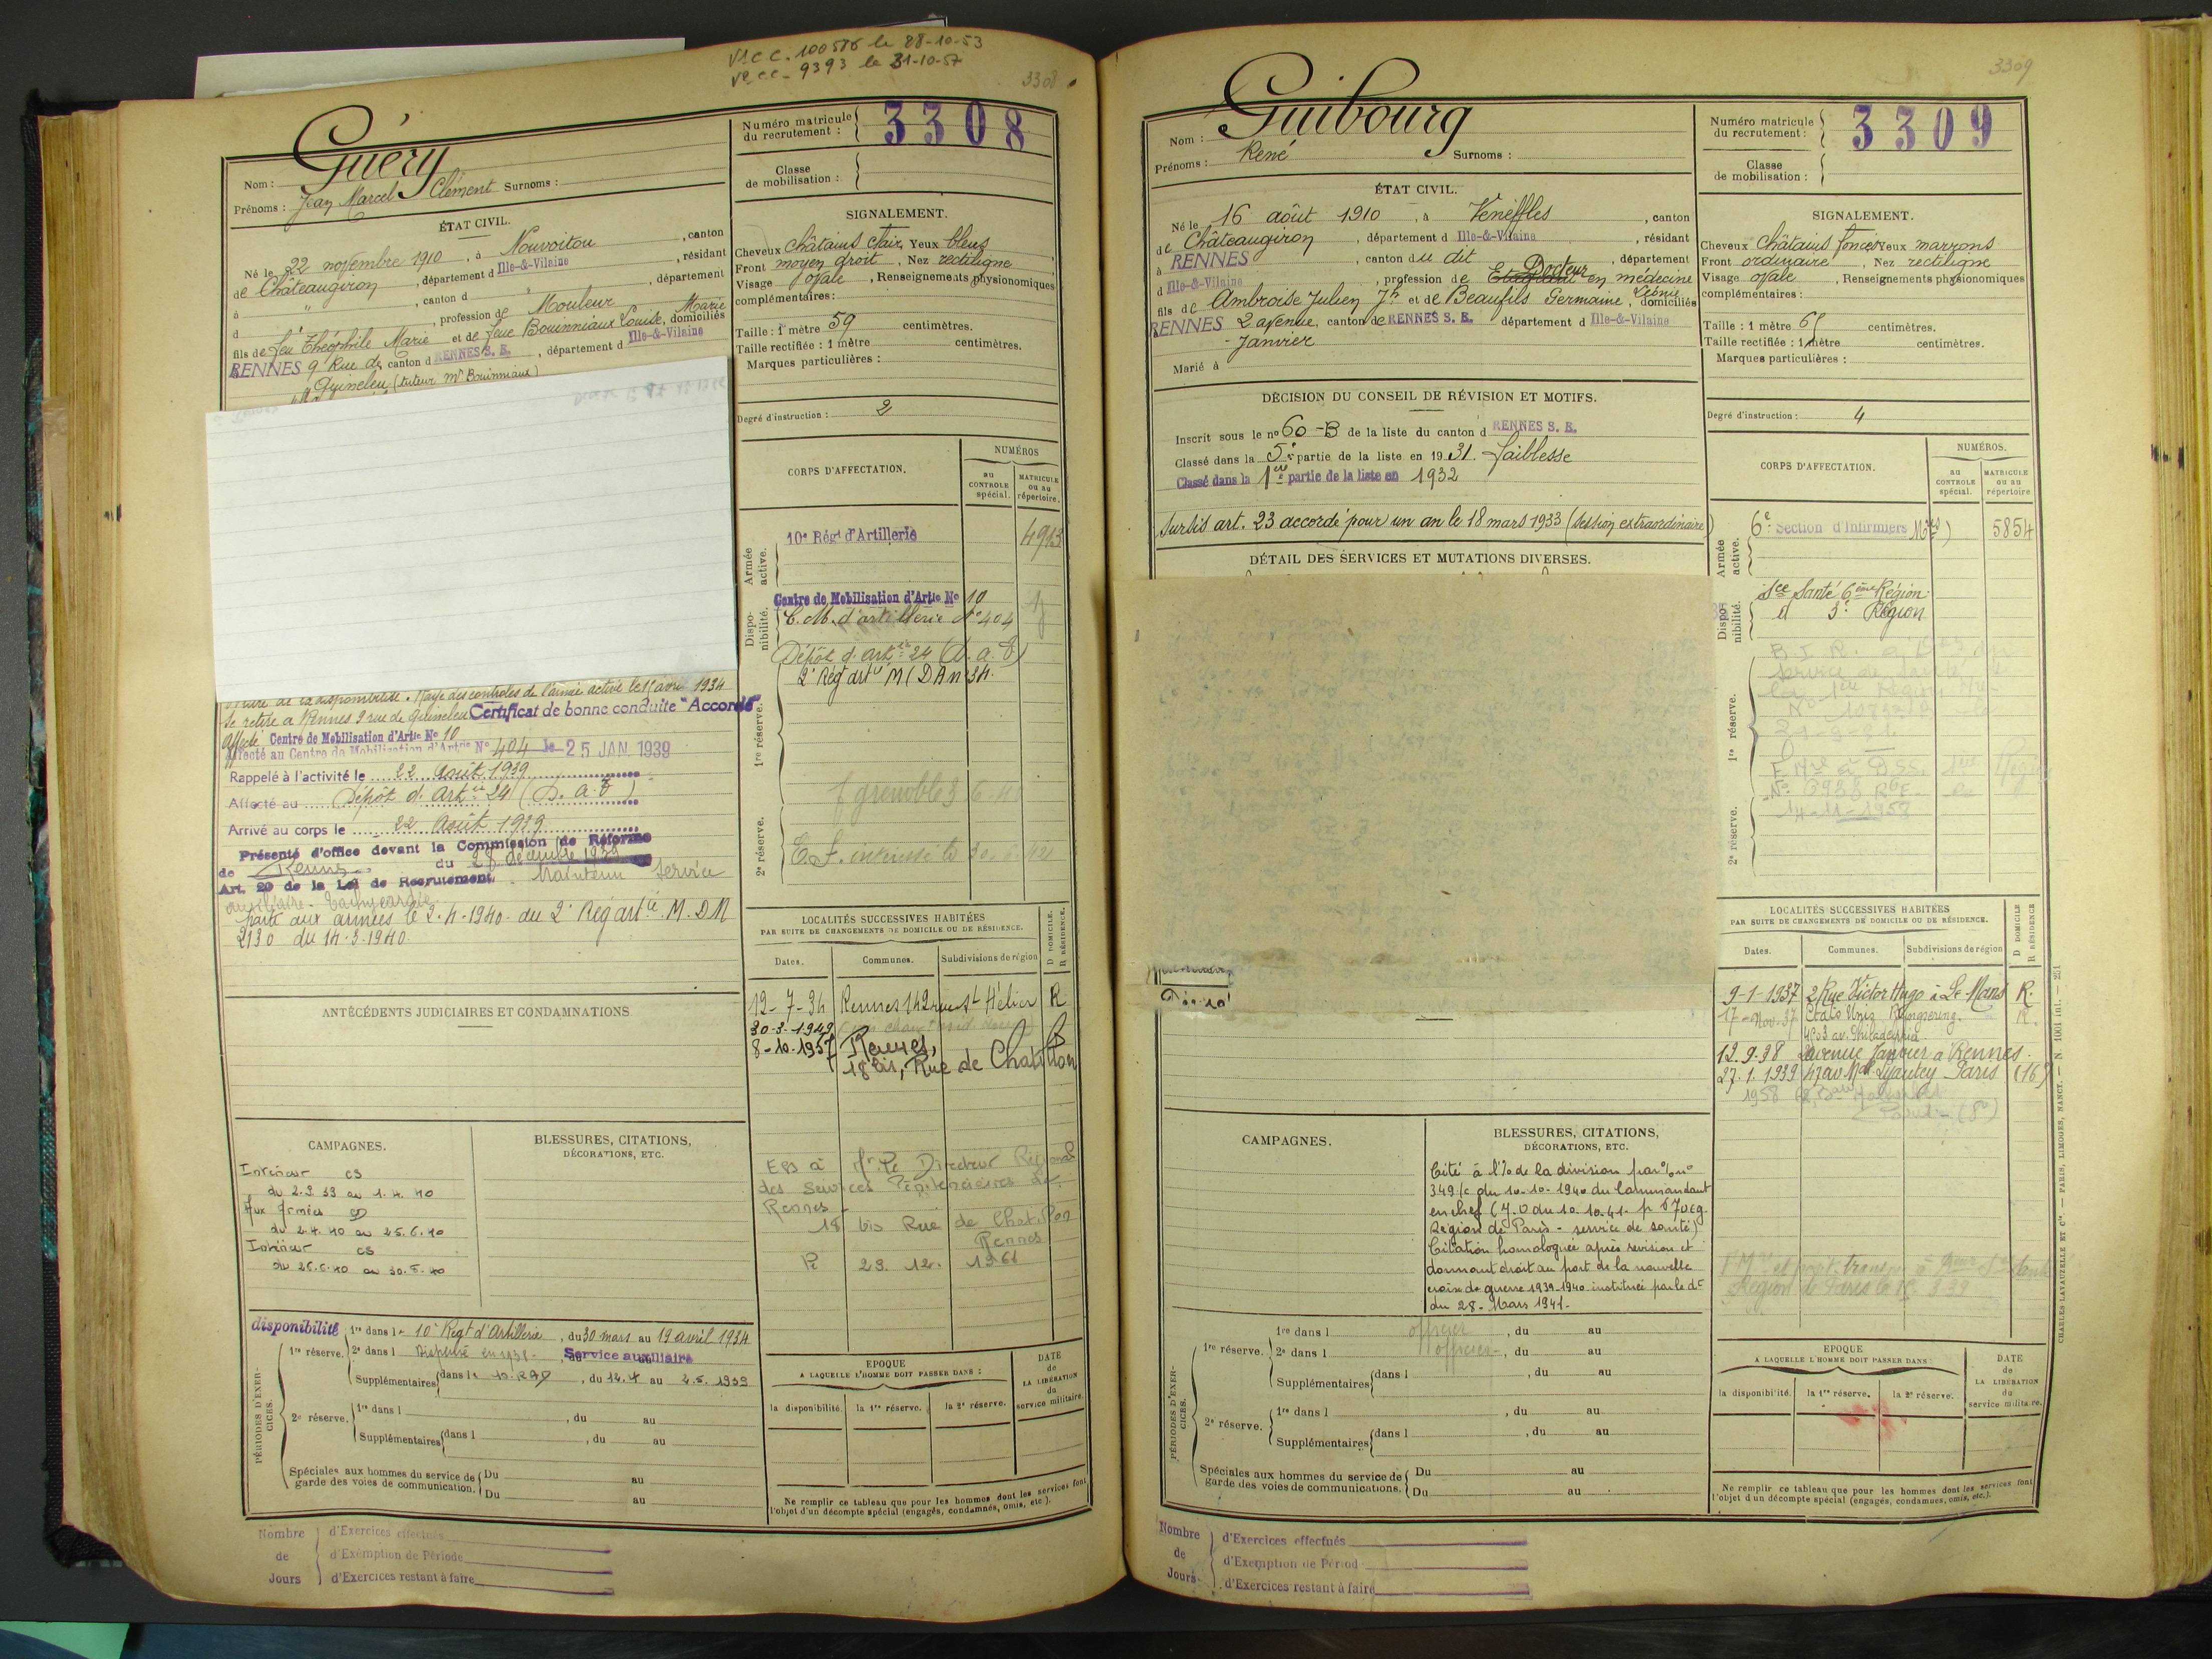 V1CC. 100576 le 28-10-53
V2CC. 9393 le 31-10-57
3308
Guéry
Nom :
Prénoms : Jean Marcel Clément Surnoms :
ÉTAT CIVIL.
Né le 22 novembre 1910, à Nouvoitou, canton
de Châteaugiron, département d Ille-&-Vilaine, résidant
à " , canton d " , département
d , profession de Mouleur
fils de feu Théophile Marie et de feue Bouinniaux Louise, Marie domiciliés
RENNES 9 Rue de canton d RENNES S. E. , département d Ille-&-Vilaine
Quineleu (tuteur Mr Bouinniaux)
Rayé des contrôles de l'armée active le 15 avril 1934
Se retire à Rennes 9 rue de Quineleu Certificat de bonne conduite "Accordé"
Affecté Centre de Mobilisation d'Artie No 10
Affecté au Centre de Mobilisation d'Artie No 404 le 25 JAN. 1939
Rappelé à l'activité le 22 Août 1939
Affecté au Dépôt d. Artie 24 (D. a. T)
Arrivé au corps le 22 Août 1939
Présenté d'office devant la Commission de Réforme
de Rennes du 28 décembre 1939
Art. 20 de la Loi de Recrutement. Maintenu Service
auxiliaire. Tachycardie.
Parti aux armées le 2-4-1940 du 2e Rég artie M. D.M
2130 du 14-3-1940.
ANTÉCÉDENTS JUDICIAIRES ET CONDAMNATIONS
CAMPAGNES.
Intérieur CS
du 2.9.39 au 1.4.40
Aux Armées CD
du 2.4.40 au 25.6.40
Intérieur CS
du 26.6.40 au 30.6.40
BLESSURES, CITATIONS,
DÉCORATIONS, ETC.
PÉRIODES D'EXERCICES.
disponibilité 1re dans l 10e Regt d'Artillerie, du 30 mars au 19 avril 1934
1re réserve. 2e dans l Dispensé en 1938 - Service auxiliaire
Supplémentaires dans l 10. RAD, du 14.4 au 2.5.1939
2e réserve. 1re dans l , du au
Supplémentaires dans l , du au
Spéciales aux hommes du service de Du au
garde des voies de communication. Du au
Nombre de Jours
d'Exercices effectués
d'Exemption de Période
d'Exercices restant à faire
Numéro matricule
du recrutement : 3308
Classe
de mobilisation :
SIGNALEMENT.
Cheveux châtains clair, Yeux bleus
Front moyen droit, Nez rectiligne
Visage ovale, Renseignements physionomiques
complémentaires :
Taille : 1 mètre 59 centimètres.
Taille rectifiée : 1 mètre centimètres.
Marques particulières :
Degré d'instruction : 2
CORPS D'AFFECTATION.
NUMÉROS
au CONTROLE spécial.
MATRICULE ou au répertoire.
Armée active.
10e Régt d'Artillerie 4913
Disponibilité.
Centre de Mobilisation d'Artie No 10
C. M. d'artillerie No 404
Dépôt d. artie 24 (D. a. T)
2e Rég artie M (DA no 34.
1re réserve.
f grenoble 3 6-40
2e réserve.
LOCALITÉS SUCCESSIVES HABITÉES
PAR SUITE DE CHANGEMENTS DE DOMICILE OU DE RÉSIDENCE.
D DOMICILE. R RÉSIDENCE.
Dates. Communes. Subdivisions de région
12-7-34 Rennes 142 rue St Hélier R
30-3-1949
8-10-1957 Rennes,
18 bis, Rue de Chatillon
Mr le Directeur Régional
des Services Pénitenciaires de
Rennes
18 bis Rue de Chatillon
Rennes
23. 12. 1966
EPOQUE
A LAQUELLE L'HOMME DOIT PASSER DANS :
la disponibilité. la 1re réserve. la 2e réserve.
DATE de LA LIBÉRATION du service militaire.
Ne remplir ce tableau que pour les hommes dont les services font
l'objet d'un décompte spécial (engagés, condamnés, omis, etc.).
3309
Guibourg
Nom :
Prénoms : René Surnoms :
ÉTAT CIVIL.
Né le 16 août 1910, à Veneffles, canton
de Châteaugiron, département d Ille-&-Vilaine, résidant
à RENNES, canton du dit, département
d Ille-&-Vilaine, profession de Etudiant Docteur en médecine
fils de Ambroise Julien Jh et de Beaufils Germaine, Léonie domiciliés
RENNES 2 avenue, canton de RENNES S. E. département d Ille-&-Vilaine
- Janvier
Marié à
DÉCISION DU CONSEIL DE RÉVISION ET MOTIFS.
Inscrit sous le no 60-B de la liste du canton d RENNES S. E.
Classé dans la 5e partie de la liste en 1931. faiblesse
Classé dans la 1ère partie de la liste en 1932
Sursis art. 23 accordé pour un an le 18 mars 1933 (session extraordinaire)
DÉTAIL DES SERVICES ET MUTATIONS DIVERSES.
CAMPAGNES.
BLESSURES, CITATIONS,
DÉCORATIONS, ETC.
Cité à l'/o de la division par o/ no
349/c du 10-10-1940 du Commandant
en chef (J.O du 10.10.41. p
Région de Paris - service de santé)
Citation homologuée après revision et
donnant droit au port de la nouvelle
croix de guerre 1939-1940 instituée par le dt
du 28-Mars 1941-
PÉRIODES D'EXERCICES.
1re réserve. 1re dans l officier, du au
2e dans l officier, du au
Supplémentaires dans l , du au
2e réserve. 1re dans l , du au
Supplémentaires dans l , du au
Spéciales aux hommes du service de Du au
garde des voies de communications. Du au
Nombre de Jours
d'Exercices effectués
d'Exemption de Périod
d'Exercices restant à faire
Numéro matricule
du recrutement : 3309
Classe
de mobilisation :
SIGNALEMENT.
Cheveux châtains foncés Yeux marrons
Front ordinaire, Nez rectiligne
Visage ovale, Renseignements physionomiques
complémentaires :
Taille : 1 mètre 65 centimètres.
Taille rectifiée : 1 mètre centimètres.
Marques particulières :
Degré d'instruction : 4
CORPS D'AFFECTATION.
NUMÉROS.
au CONTROLE spécial.
MATRICULE ou au répertoire
Armée active.
6e Section d'Infirmiers Mres) 5854
Disponibilité.
Sce Santé 6ème Région
d 3e Région
1re réserve.
service de Santé
la 1ère Région
14-11-1958
2e réserve.
LOCALITÉS SUCCESSIVES HABITÉES
PAR SUITE DE CHANGEMENTS DE DOMICILE OU DE RÉSIDENCE.
D DOMICILE R RÉSIDENCE
Dates. Communes. Subdivisions de région
9-1-1937 2 Rue Victor Hugo à Le Mans R.
17-Nov. 37 Etats Unis R.
4803 av. Philadelphia
12.9.38 2 avenue Janvier à Rennes.
27.1.1939 47 av Mal Lyautey Paris (16)
1958
EPOQUE
A LAQUELLE L'HOMME DOIT PASSER DANS :
la disponibilité. la 1re réserve. la 2e réserve.
DATE de LA LIBÉRATION du service militaire.
Ne remplir ce tableau que pour les hommes dont les services font
l'objet d'un décompte spécial (engagés, condamnés, omis, etc.).
CHARLES-LAVAUZELLE ET Cie. — PARIS, LIMOGES, NANCY. — N. 1001 int. — 251